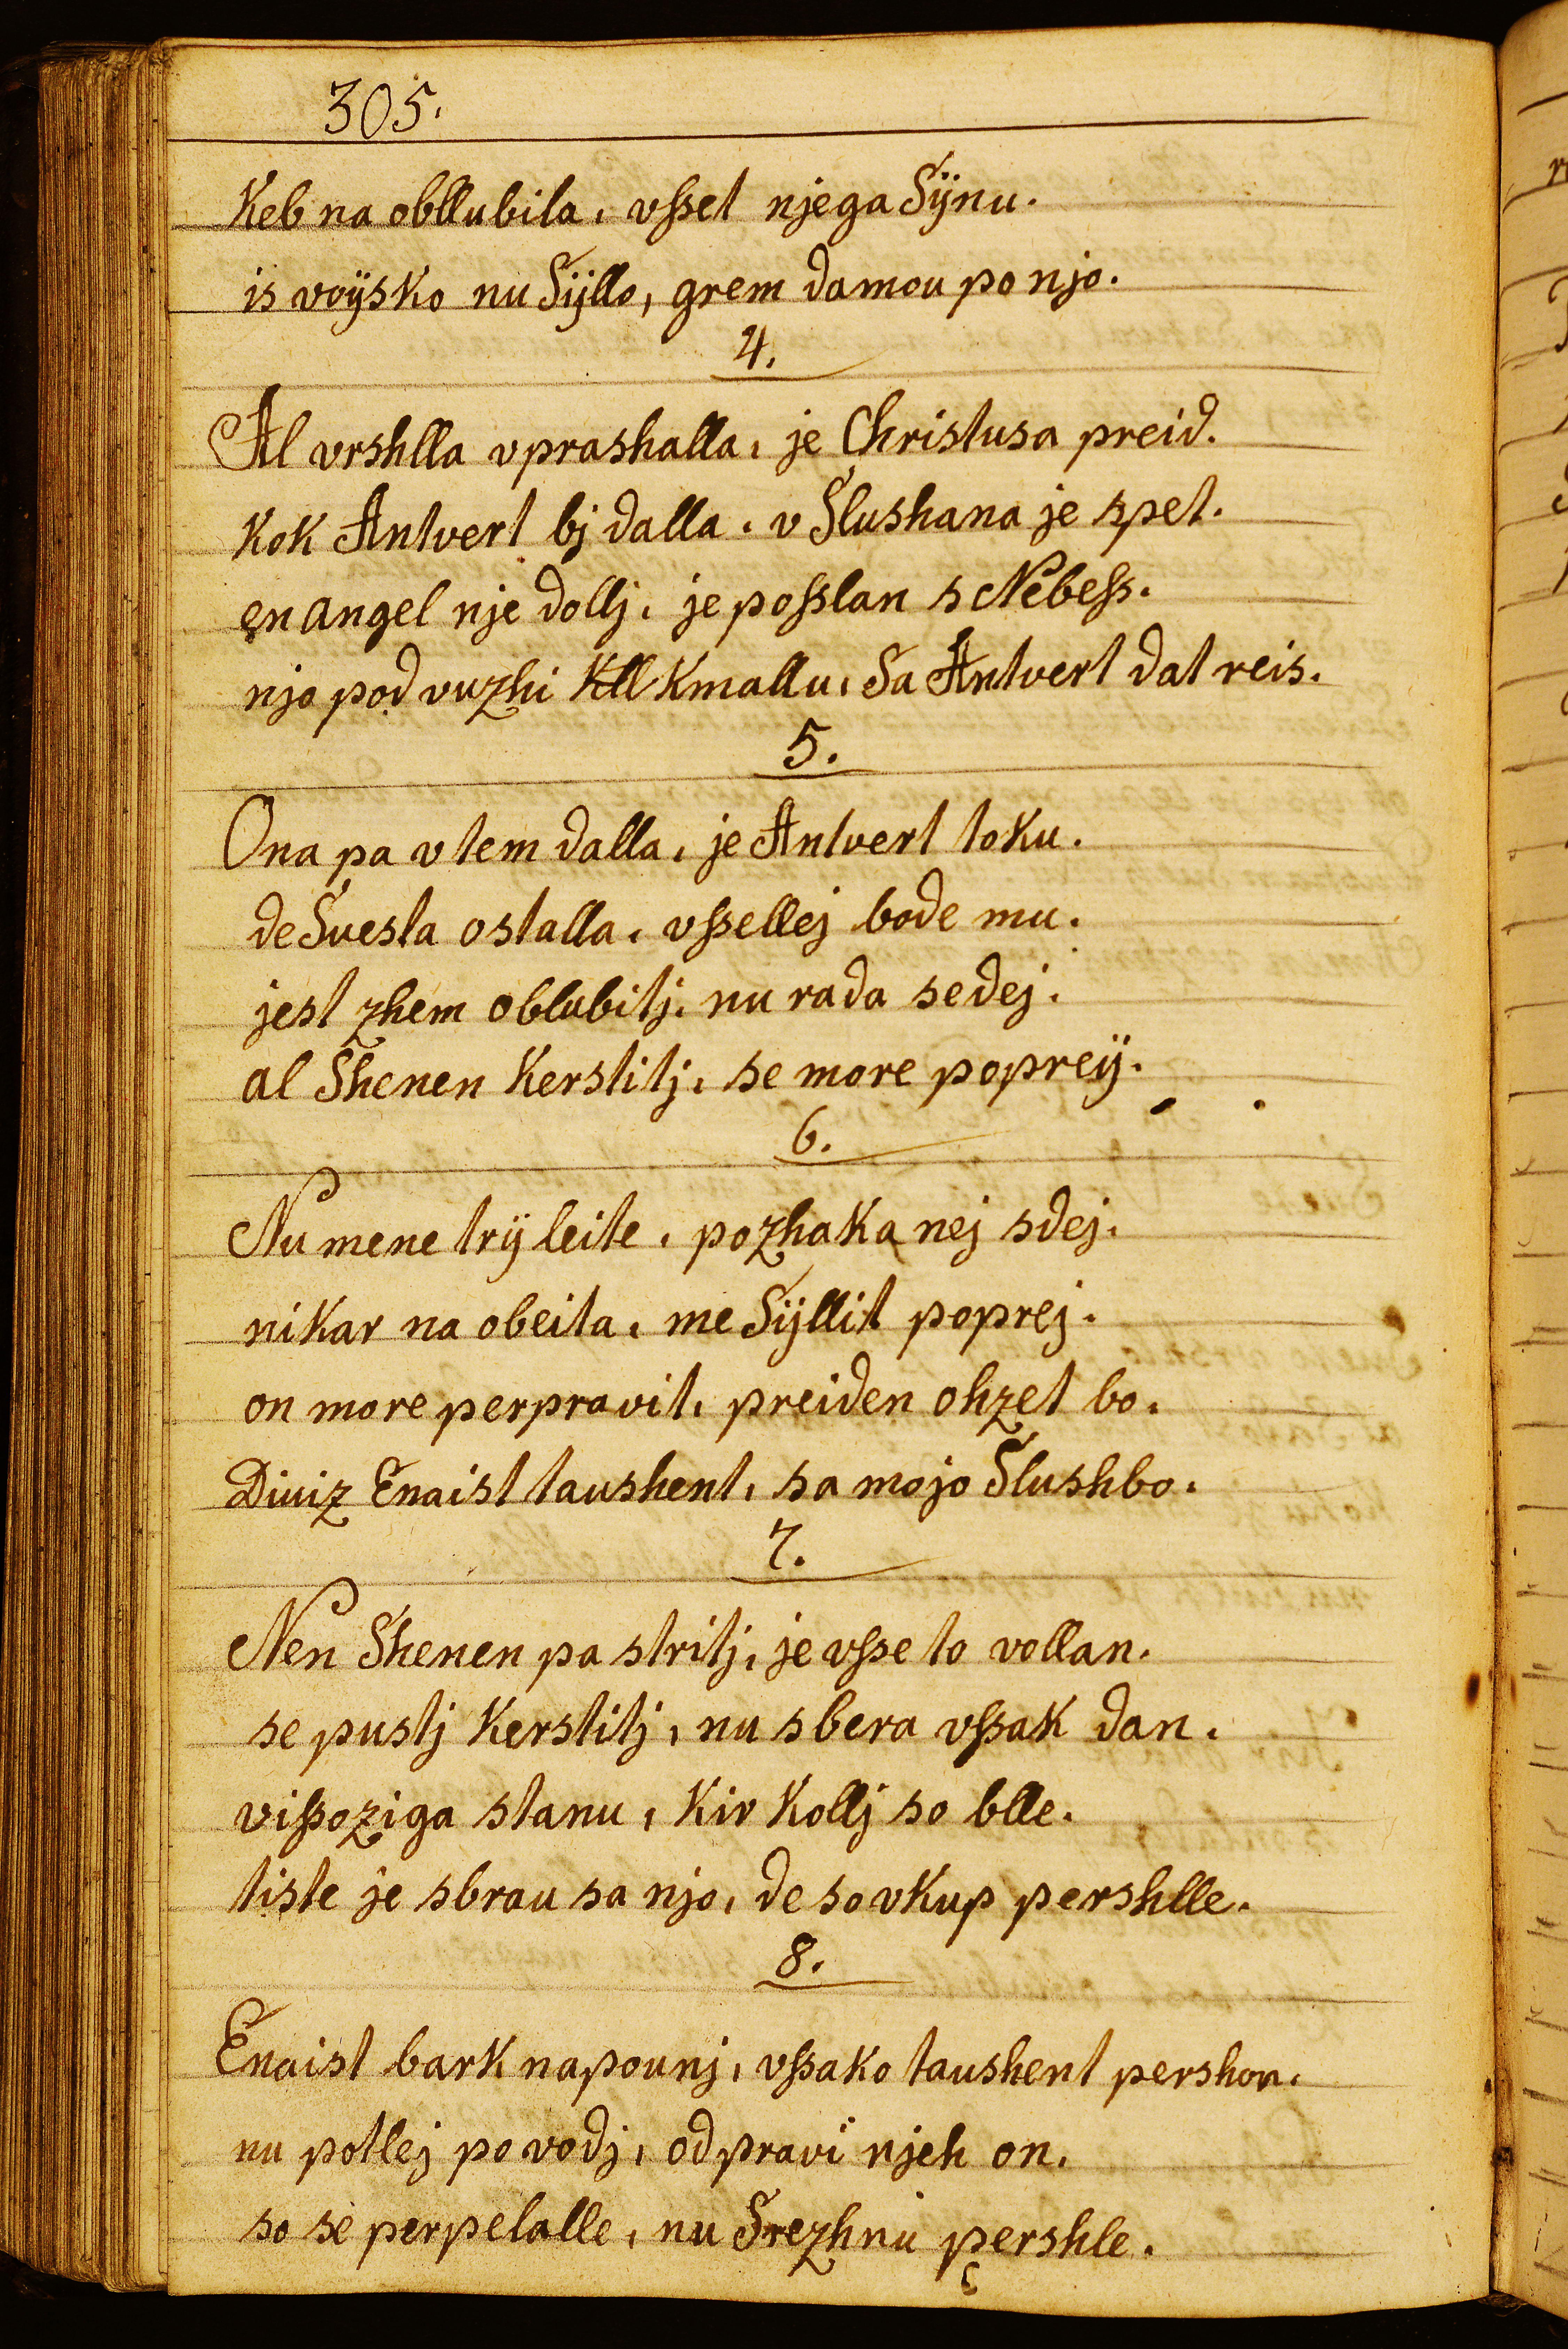 305.
Keb na obllubila, vſset njega Sÿnu.
is voÿsko nu Sÿllo, grem damou po njo.
4.
Al vrshlla vprashalla, je Christusa preid.
Kok Antvert bj dalla, v Slushana je spet.
en angel nje dollj, je poſslan s Nebeſs.
njo pod vuzhi Kmallu, Sa Antvert dat reis.
5.
Ona pa v tem dalla, je Antvert toku.
de Svesta ostalla, vſsellej bode mu.
jest zhem oblubitj, nu rada sedej.
al Shenen Kerstitj, se more popreÿ.
6.
Nu mene trÿ leite, pozhaka nej sdej.
nikar na obeita, me Sÿllit poprej.
on more perpravit, preiden ohzet bo.
Diviz Enaist taushent, sa mojo Slushbo.
7.
Nen Shenen pa stritj, je vſse to vollan.
se pustj Kerstitj, nu sbera vſsak dan.
viſsoziga stanu, Kir Kollj so blle.
tiste je sbrau sa njo, de so vkup pershlle.
8.
Enaist bark napounj, vſsako taushent pershon.
nu potlej po vodj, odpravi njeh on.
so se perpelalle, nu Srezhnu pershle.